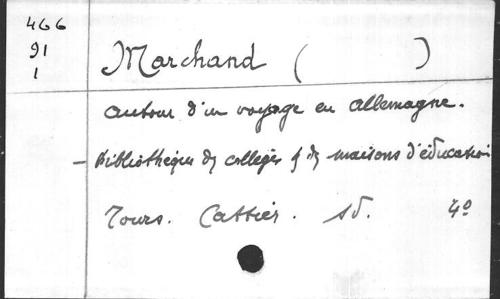 466
91
1
Marchand ( )
autour d'un voyage en allemagne.
- Bibliothèque ds collèges & ds maisons d'éducation
Tours. Cattier. sd. 4º